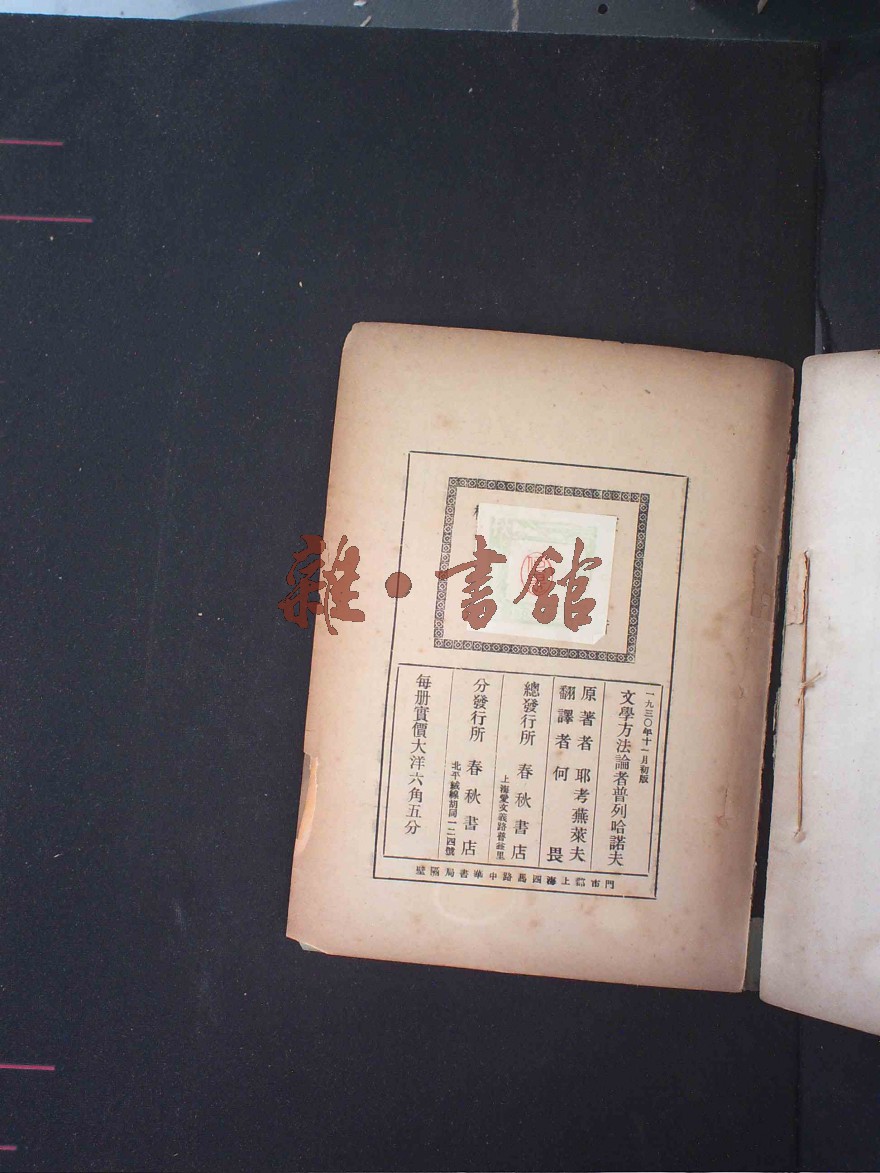 雜·書舘
一九三〇年十一月初版
文學方法論者普列哈諾夫
原著者 耶考蕪萊夫
翻譯者 何畏
總發行所 春秋書店
上海愛文義路普益里
分發行所 春秋書店
北平絨線胡同一二四號
每册實價大洋六角五分
門市部上海四馬路中華書局隔壁